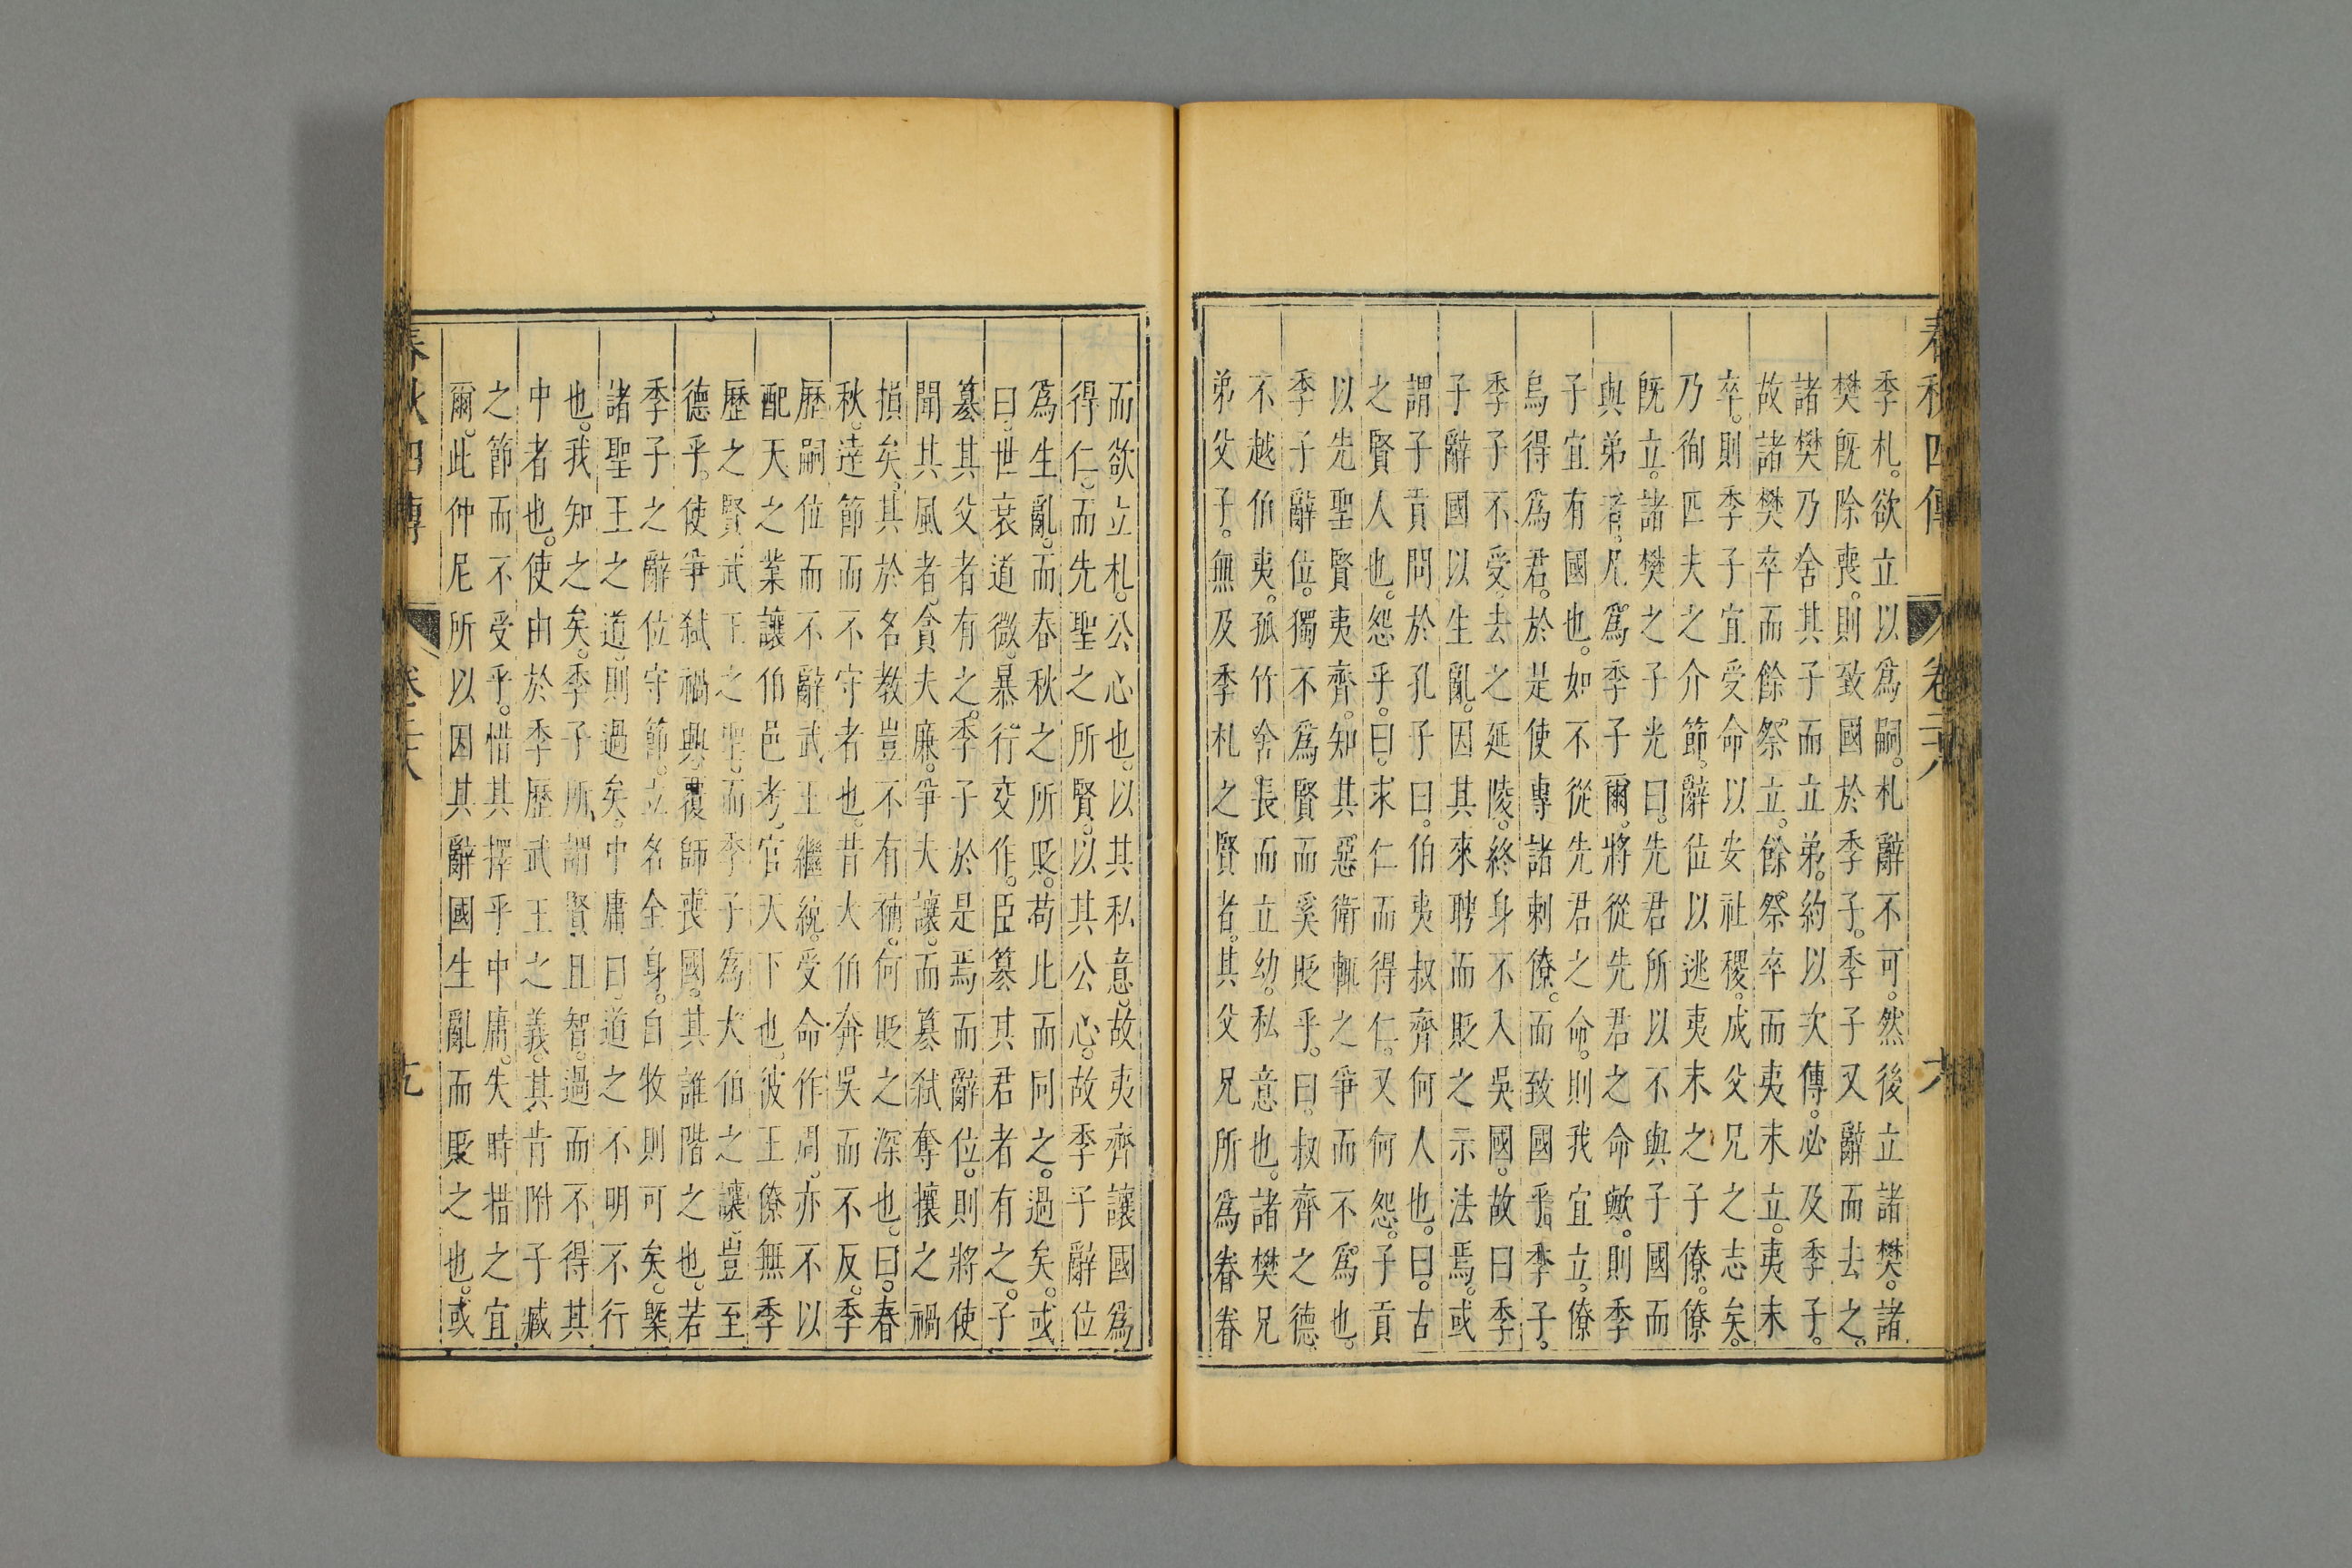 春秋四傳 卷二十八 六
季札。欲立以爲嗣。札辭不可。然後立諸樊。諸
樊旣除喪。則致國於季子。季子又辭而去之。
諸樊乃舍其子而立弟。約以次傳。必及季子。
故諸樊卒而餘祭立。餘祭卒而夷末立。夷末
卒。則季子宜受命以安社稷。成父兄之志矣。
乃徇匹夫之介節。辭位以逃夷末之子僚。僚
旣立。諸樊之子光曰。先君所以不與子國而
與弟者。凡爲季子爾。將從先君之命歟。則季
子宜有國也。如不從先君之命。則我宜立。僚
烏得爲君。於是使專諸刺僚。而致國乎季子。
季子不受。去之延陵。終身不入吳國。故曰季
子辭國以生亂。因其來聘而貶之示法焉。或
謂子貢問於孔子曰。伯夷叔齊何人也。曰。古
之賢人也。怨乎。曰。求仁而得仁。又何怨。子貢
以先聖賢夷齊。知其惡衛輒之爭而不爲也。
季子辭位。獨不爲賢而奚貶乎。曰。叔齊之德。
不越伯夷。孤竹舍長而立幼。私意也。諸樊兄
弟父子。無及季札之賢者。其父兄所爲眷眷
而欲立札。公心也。以其私意。故夷齊讓國爲
得仁。而先聖之所賢。以其公心。故季子辭位
爲生亂。而春秋之所貶。苟比而同之。過矣。或
曰。世衰道微。暴行交作。臣簒其君者有之。子
簒其父者有之。季子於是焉而辭位。則將使
聞其風者。貪夫廉。爭夫讓。而簒弑奪攘之禍
損矣。其於名教豈不有補。何貶之深也。曰。春
秋。達節而不守者也。昔大伯奔吳而不反。季
歷嗣位而不辭。武王繼統。受命作周。亦不以
配天之業讓伯邑考。官天下也。彼王僚無季
歷之賢。武王之聖。而季子爲太伯之讓。豈至
德乎。使爭弑禍興。覆師喪國。其誰階之也。若
季子之辭位守節。立名全身。自牧則可矣。槩
諸聖王之道。則過矣。中庸曰。道之不明不行
也。我知之矣。季子所謂賢且智。過而不得其
中者也。使由於季歷武王之義。其肯附子臧
之節而不受乎。惜其擇乎中庸。失時措之宜
爾。此仲尼所以因其辭國生亂而貶之也。或
春秋四傳 卷二十八